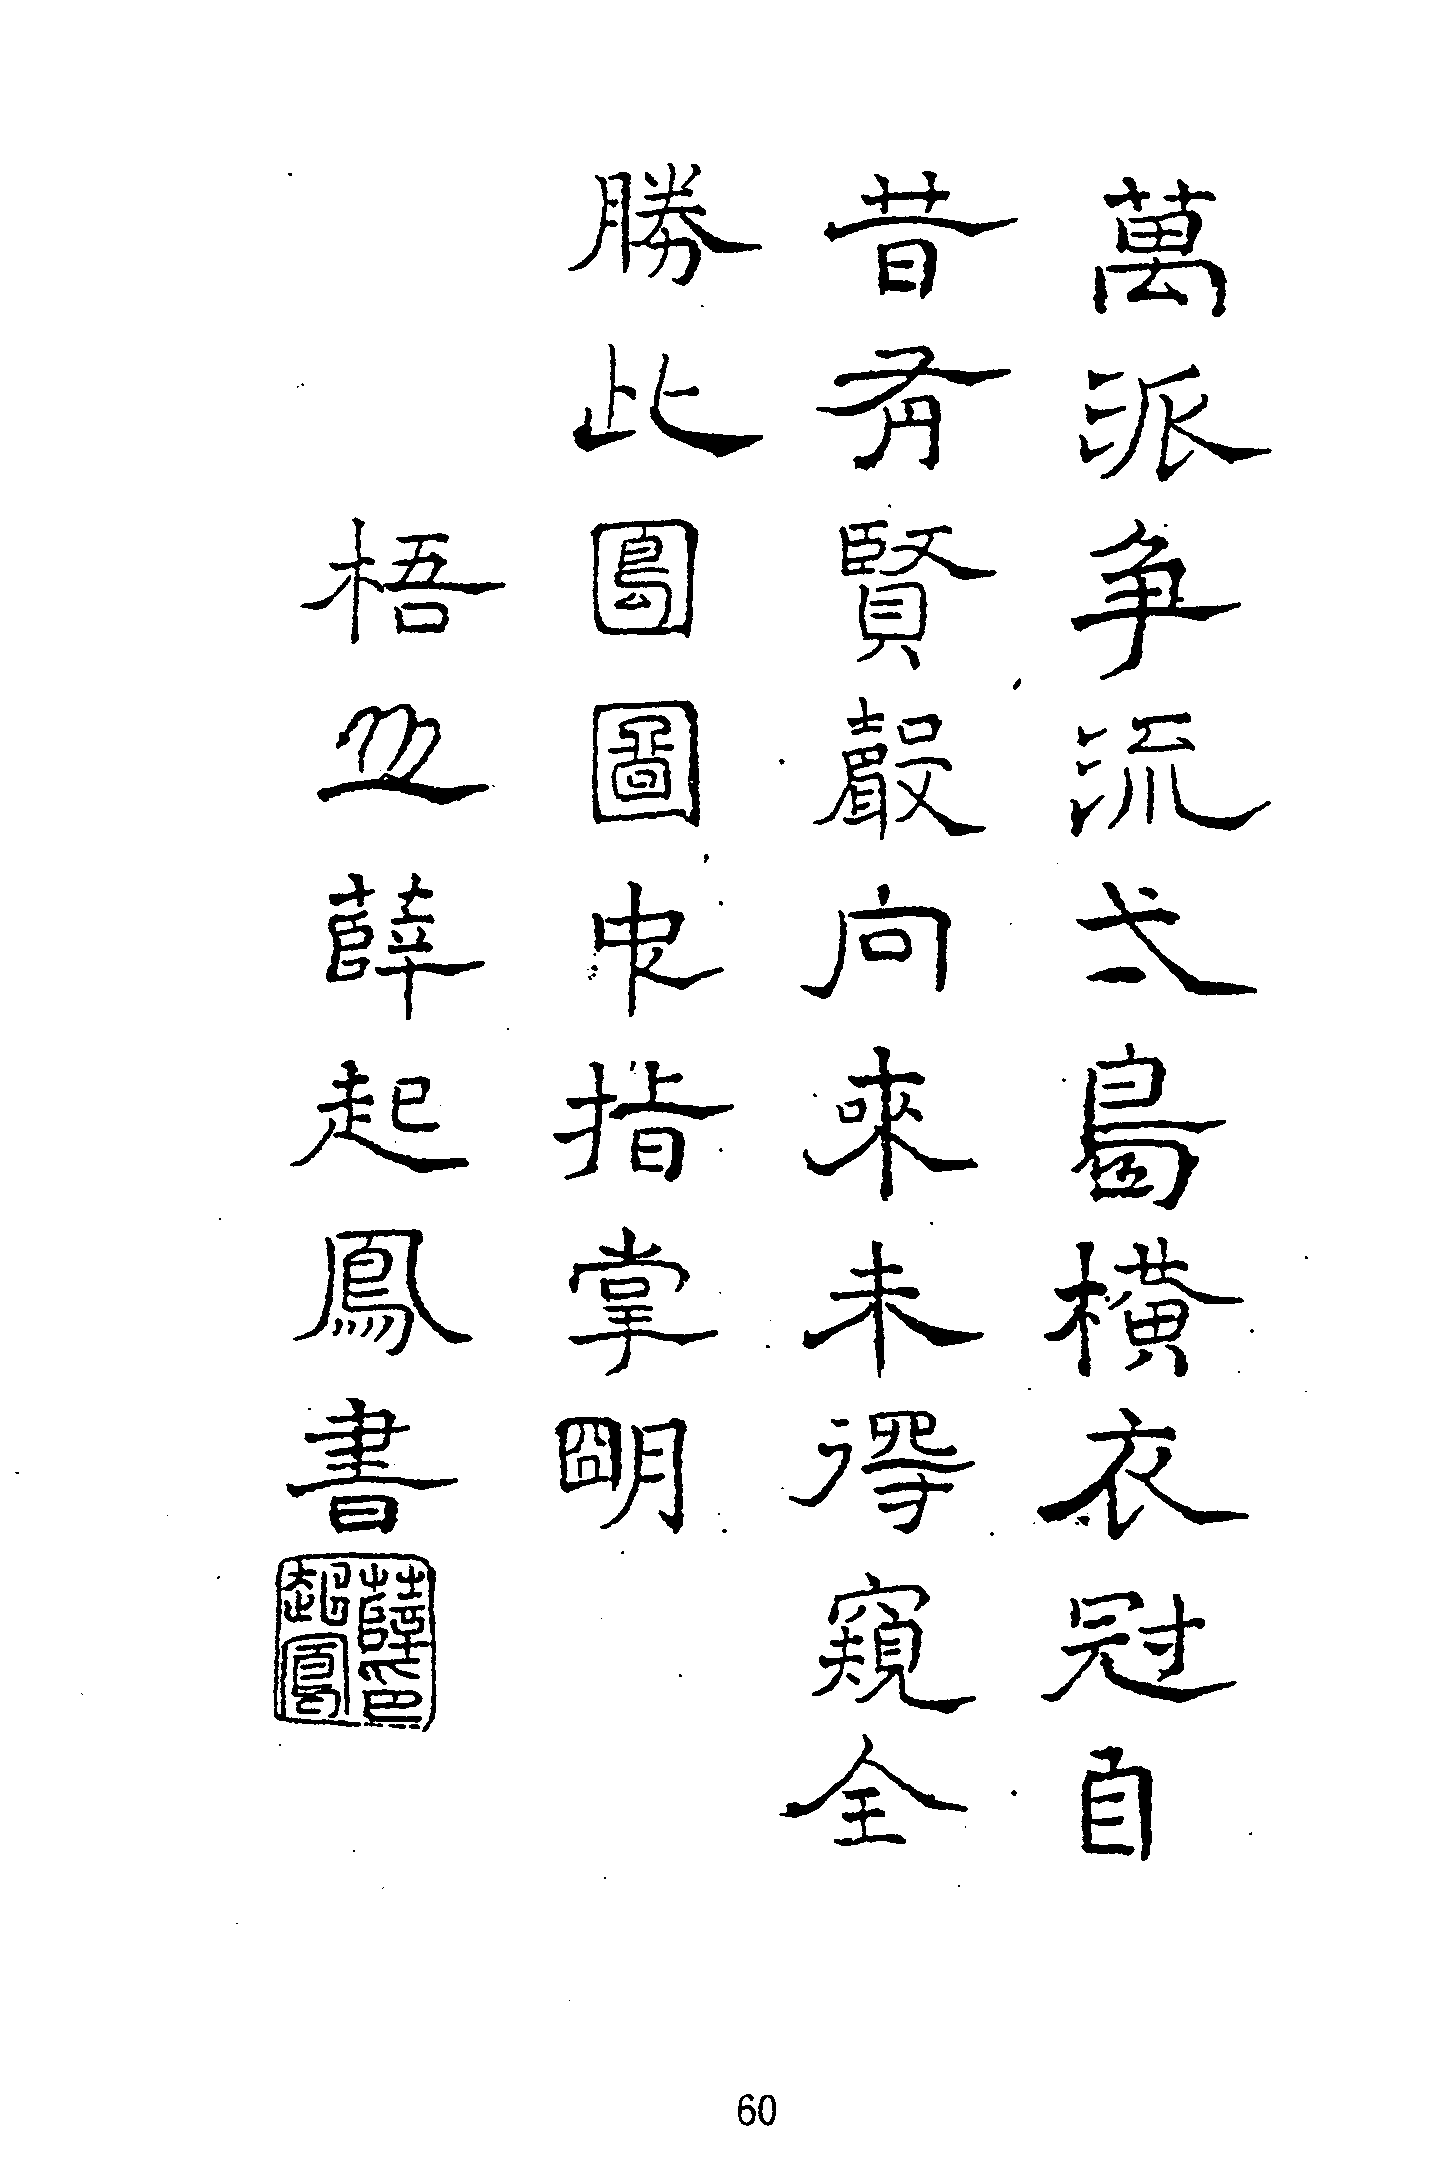 萬派争流弌島橫衣冠自
昔有賢聲向來未得窺全
勝此日圖中指掌朙
梧山薛起鳳書
薛印
起鳳
60